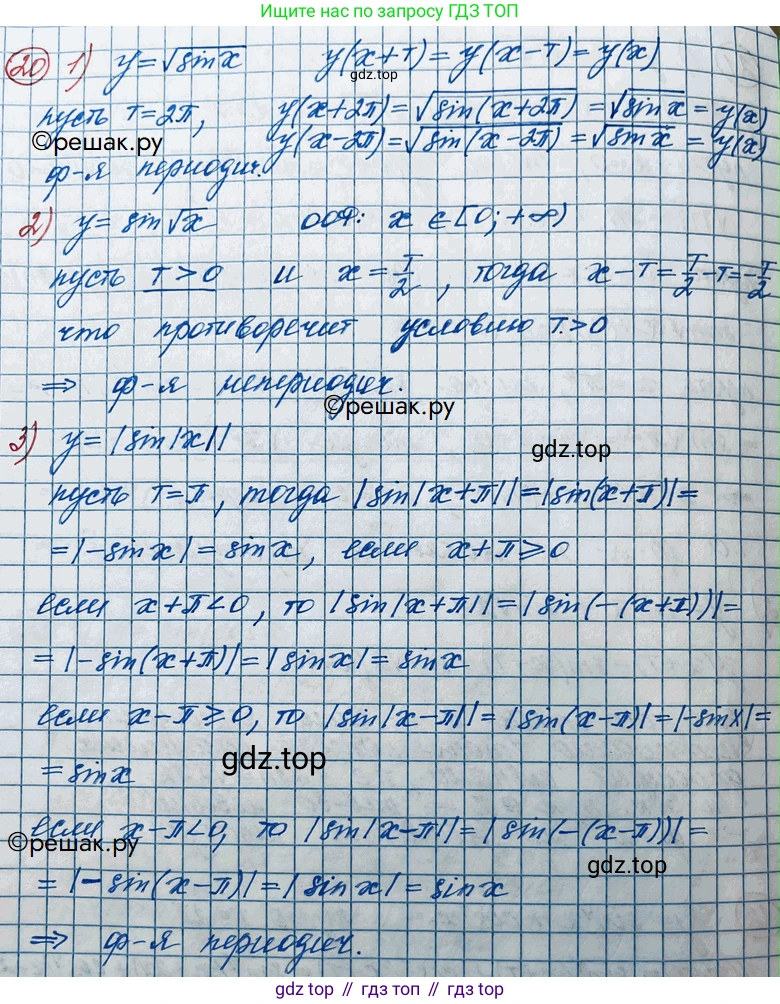 Ищите нас по запросу ГДЗ ТОП
20 1) y=√sinx y(x+T)=y(x-T)=y(x)
gdz.top
пусть T=2π, y(x+2π)=√sin(x+2π)=√sinx=y(x)
y(x-2π)=√sin(x-2π)=√sinx=y(x)
©решак.ру
ф-я периодич.
2) y=sin√x ООФ: x∈[0;+∞)
пусть T>0 и x=T/2, тогда x-T=T/2-T=-T/2
что противоречит условию T>0
⇒ ф-я непериодич.
©решак.ру
3) y=|sin|x||
gdz.top
пусть T=π, тогда |sin|x+π||=|sin(x+π)|=
=|-sinx|=sinx, если x+π≥0
если x+π<0, то |sin|x+π||=|sin(-(x+π))|=
=|-sin(x+π)|=|sinx|=sinx
если x-π≥0, то |sin|x-π||=|sin(x-π)|=|-sinx|=
=sinx
gdz.top
если x-π<0, то |sin|x-π||=|sin(-(x-π))|=
©решак.ру
gdz.top
=|-sin(x-π)|=|sinx|=sinx
⇒ ф-я периодич.
gdz.top // гдз топ // гдз.топ